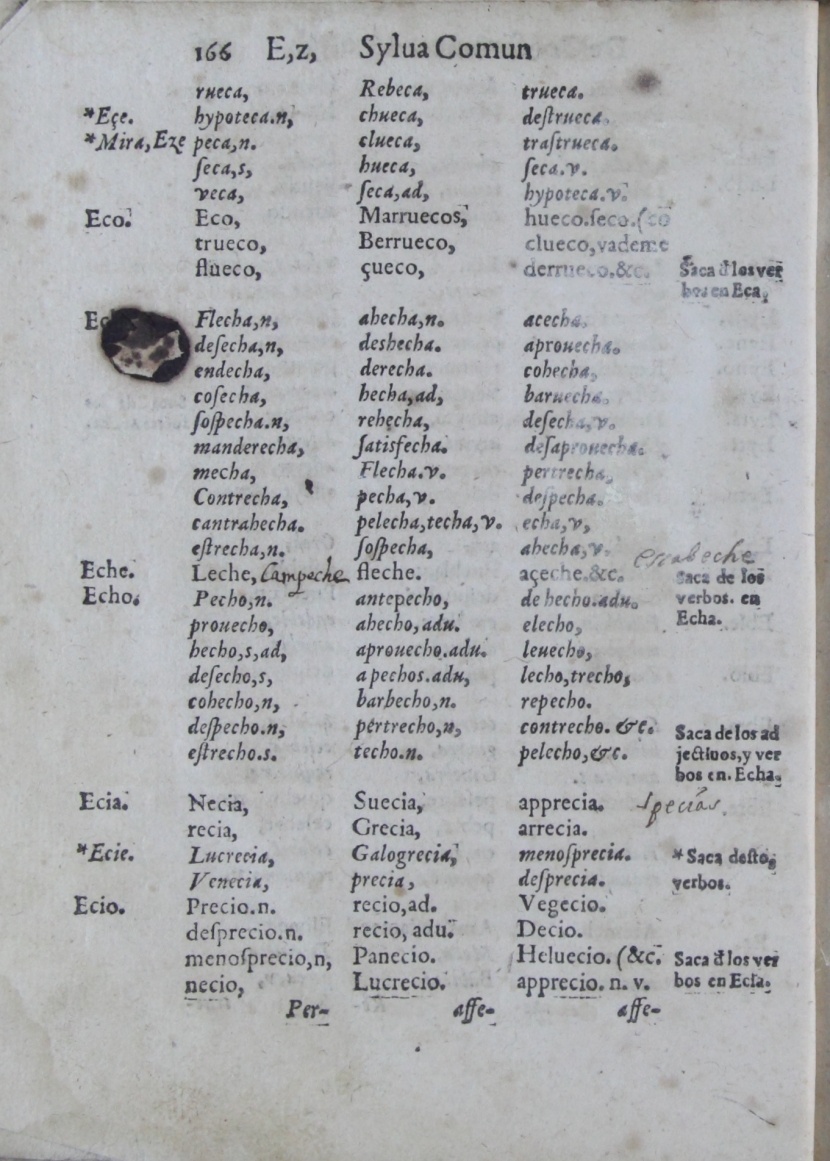 166 E,z, Sylua Comun
rueca, Rebeca, trueca.
*Eçe. hypoteca.n, chueca, deſtrueca.
*Mira, Eze peca,n. clueca, traſtrueca.
ſeca,s, hueca, ſeca.v.
veca, ſeca,ad, hypoteca.v.
Eco. Eco, Marruecos, hueco.ſeco.(co
trueco, Berrueco, clueco,vademe
flueco, çueco, derrueco.&c. Saca d̃ los ver
bos en Eca,
Flecha,n, ahecha,n. acecha,
deſecha,n, deshecha. aprouecha.
endecha, derecha. cohecha,
coſecha, hecha,ad, baruecha.
ſoſpecha.n, rehecha, deſecha,v.
manderecha, ſatisfecha. deſaprouecha.
mecha, Flecha.v. pertrecha,
Contrecha, pecha,v. deſpecha.
cantrahecha. pelecha,techa,v. echa,v,
eſtrecha,n. ſoſpecha, ahecha,v. escabeche
Eche. Leche, Campeche fleche. açeche.&c. Saca de los
Echo. Pecho,n. antepecho, de hecho.adu. verbos. en
prouecho, ahecho,adu. elecho, Echa.
hecho,s,ad, aprouecho.adu. leuecho,
deſecho,s, apechos.adu, lecho,trecho,
cohecho,n, barbecho,n. repecho.
deſpecho.n, pertrecho,n, contrecho. &c. Saca de los ad
eſtrecho.s. techo.n. pelecho,&c. jectiuos,y ver
bos en. Echa.
Ecia. Necia, Suecia, apprecia. specias
recia, Grecia, arrecia.
*Ecie. Lucrecia, Galogrecia, menoſprecia. *Saca deſtos
Venecia, precia, deſprecia. verbos.
Ecio. Precio.n. recio,ad. Vegecio.
deſprecio.n. recio, adu. Decio.
menoſprecio,n, Panecio. Heluecio. (&c. Saca d̃ los ver
necio, Lucrecio. apprecio. n. v. bos en Ecia.
Per- affe- affe-